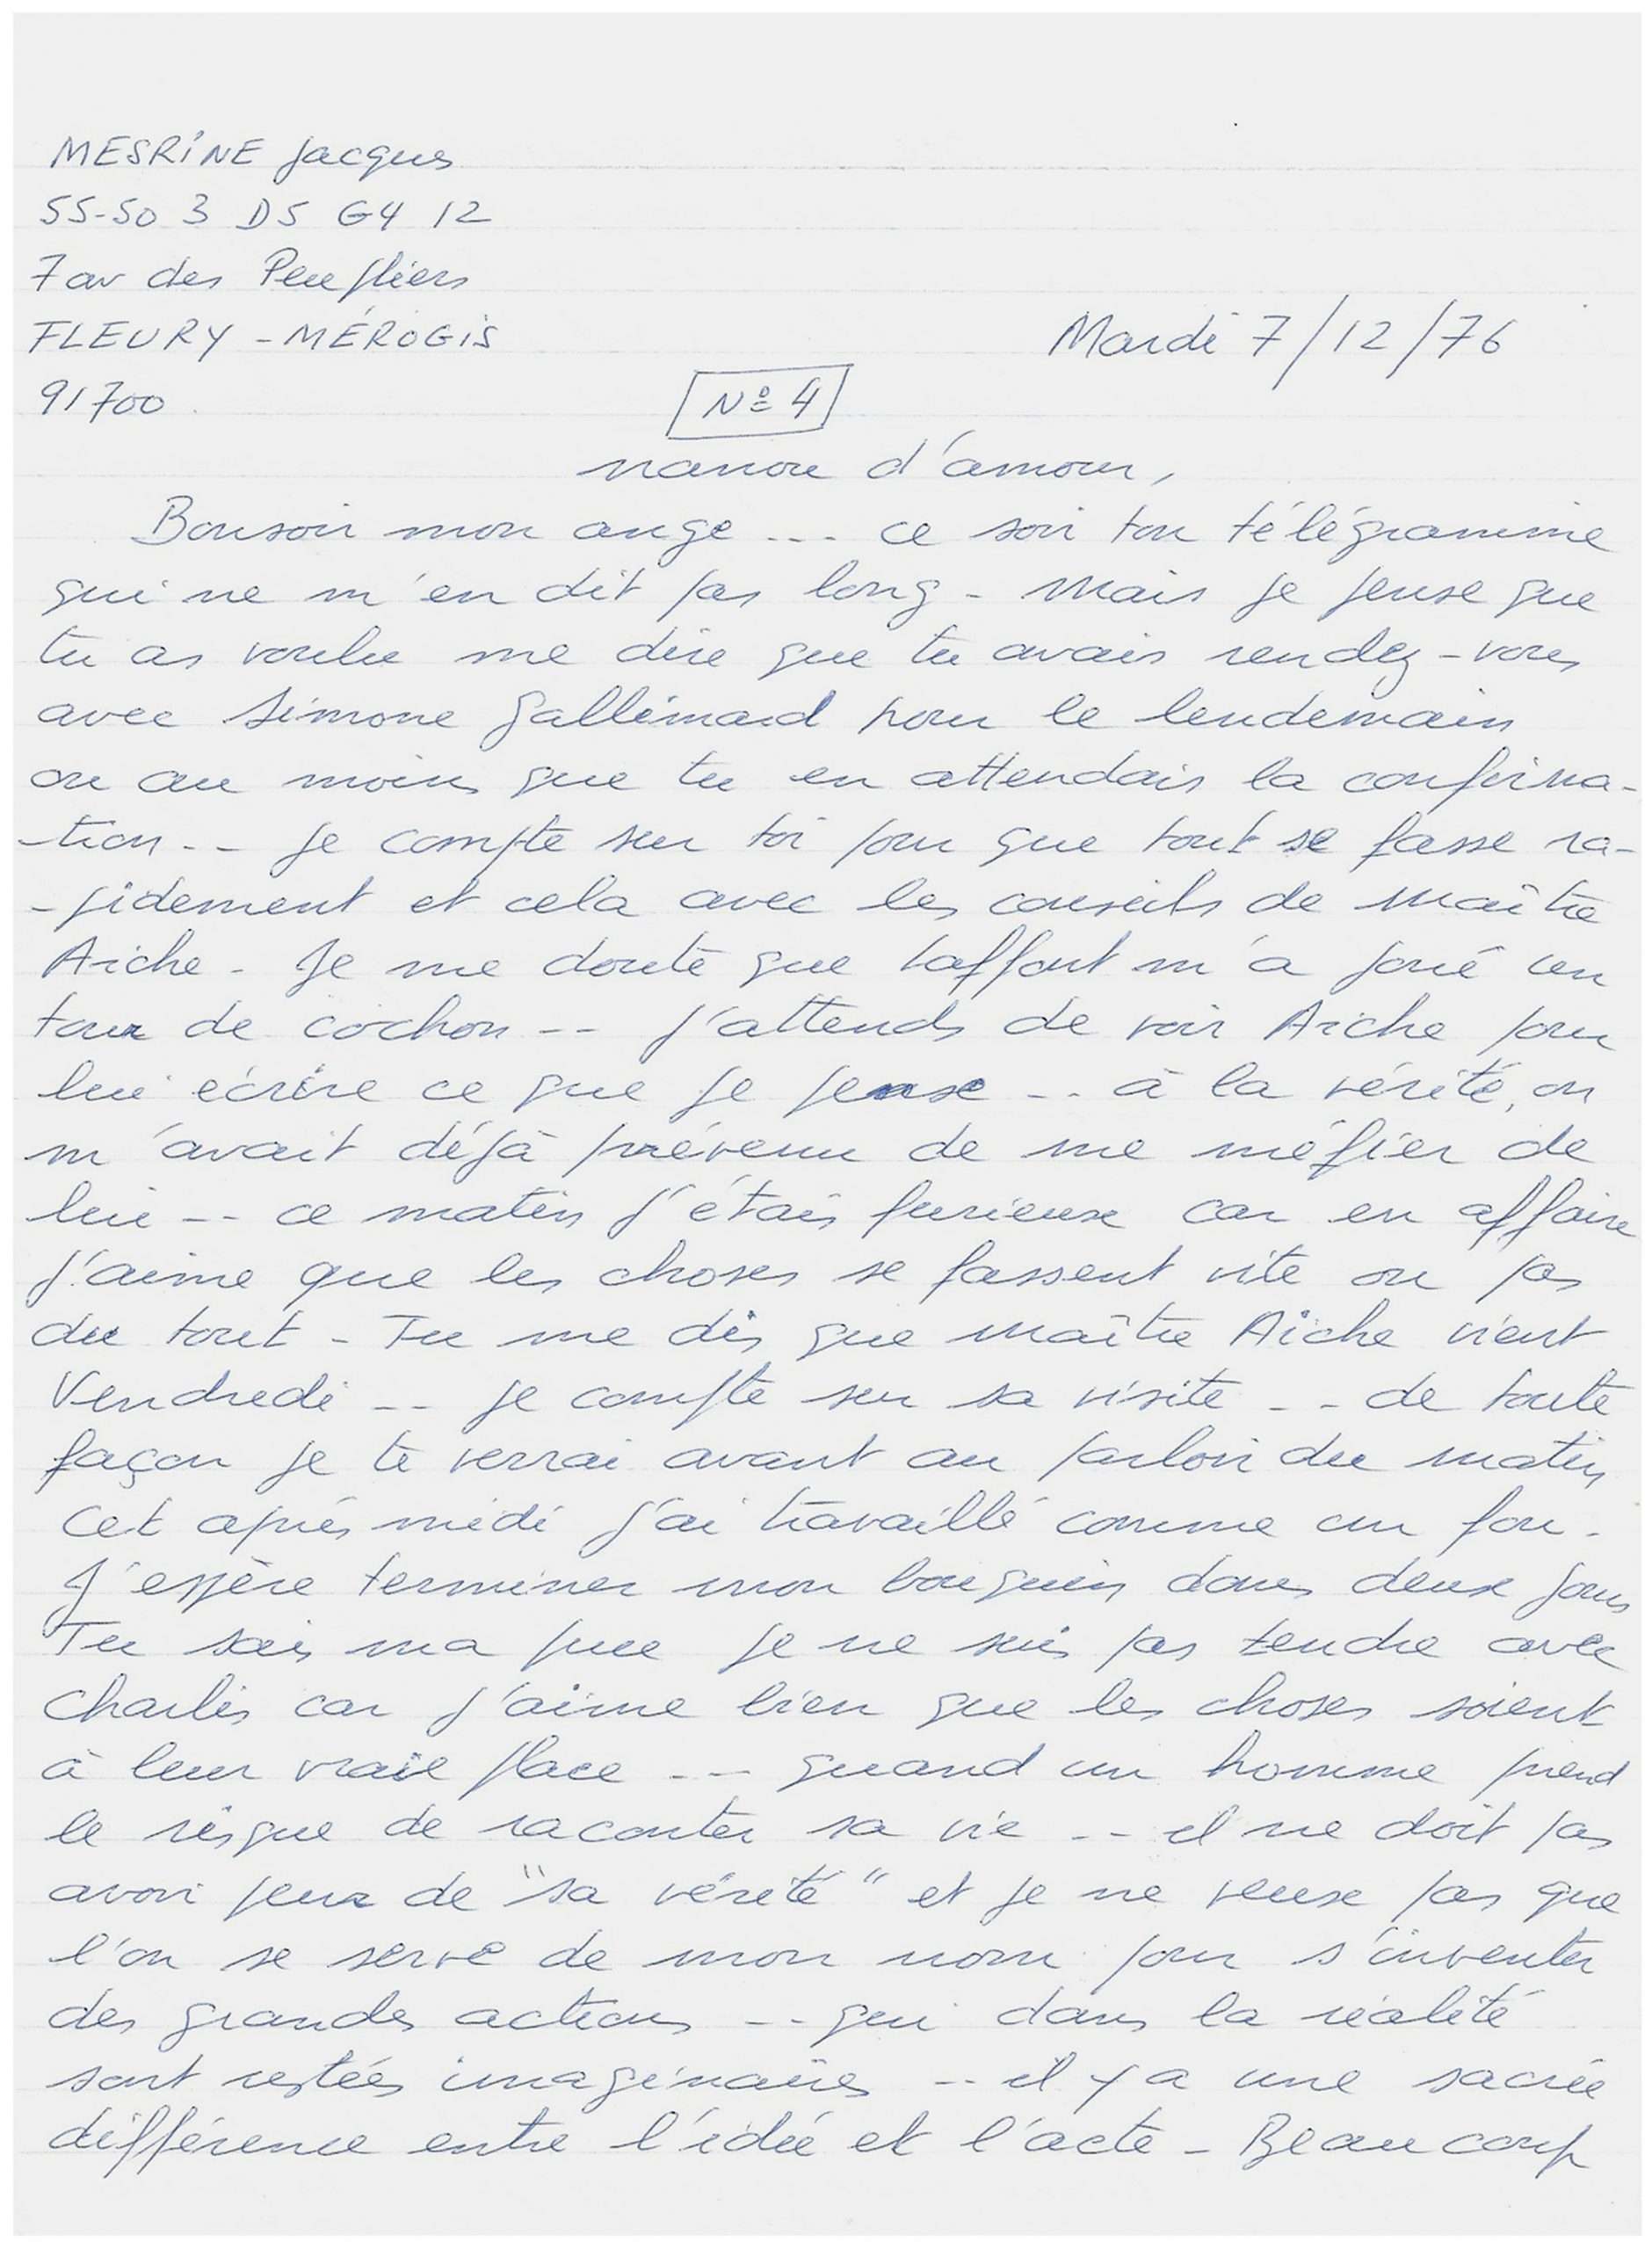 MESRINE Jacques
55-50 3 D5 G4 12
7 av des Peupliers
FLEURY - MÉROGIS
91700
Mardi 7/12/76
Nº 4
nanou d'amour,
Bonsoir mon ange ... ce soir ton télégramme
qui ne m'en dit pas long - Mais je pense que
tu as voulu me dire que tu avais rendez-vous
avec Simone Gallimard pour le lendemain
ou au moins que tu en attendais la confirma-
-tion -- Je compte sur toi pour que tout se fasse ra-
-pidement et cela avec les conseils de maître
Aiche - Je me doute que Laffont m'a joué un
tour de cochon -- J'attends de voir Aiche pour
lui écrire ce que je pense -- à la vérité, on
m'avait déjà prévenu de me méfier de
lui -- ce matin j'étais furieux car en affaire
j'aime que les choses se fassent vite ou pas
du tout - Tu me dis que maître Aiche vient
Vendredi -- je compte sur sa visite -- de toute
façon je te verrai avant au parloir du matin
Cet après midi j'ai travaillé comme un fou.
J'espère terminer mon bouquin dans deux jours
Tu sais ma puce je ne suis pas tendre avec
Charlis car j'aime bien que les choses soient
à leur vraie place -- quand un homme prend
le risque de raconter sa vie -- il ne doit pas
avoir peur de "sa vérité" et je ne veux pas que
l'on se serve de mon nom pour s'inventer
des grandes actions -- qui dans la réalité
sont restées imaginaires -- il y a une sacrée
différence entre l'idée et l'acte - Beaucoup